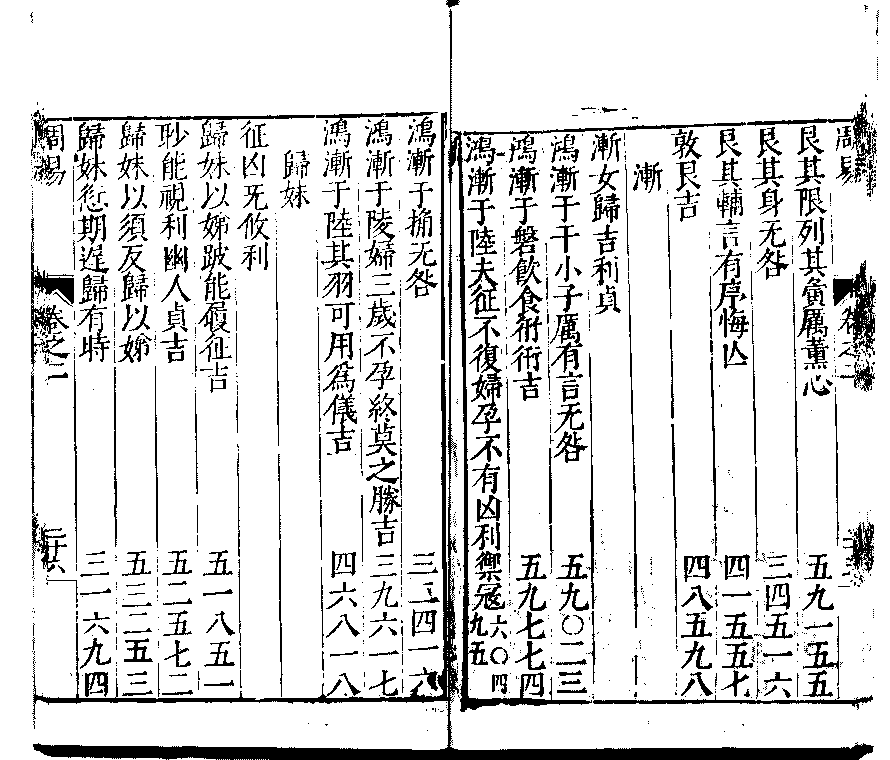 周易 卷之二
艮其限列其夤厲薰心 五九一五五
艮其身无咎 三四五一六
艮其輔言有序悔亾 四一五五七
敦艮吉 四八五九八
漸
漸女歸吉利貞
鴻漸于干小子厲有言无咎 五九〇二三
鴻漸于磐飲食衎衎吉 五九七七四
鴻漸于陸夫征不復婦孕不有凶利禦寇 六〇四九五
鴻漸于桷无咎 三二四一六
鴻漸于陵婦三歲不孕終莫之勝吉 三九六一七
鴻漸于陸其羽可用爲儀吉 四六八一八
歸妹
征凶无攸利
歸妹以娣跛能履征吉 五一八五一
眇能視利幽人貞吉 五二五七二
歸妹以須反歸以娣 五三二五三
歸妹愆期遲歸有時 三一六九四
周易 卷之二